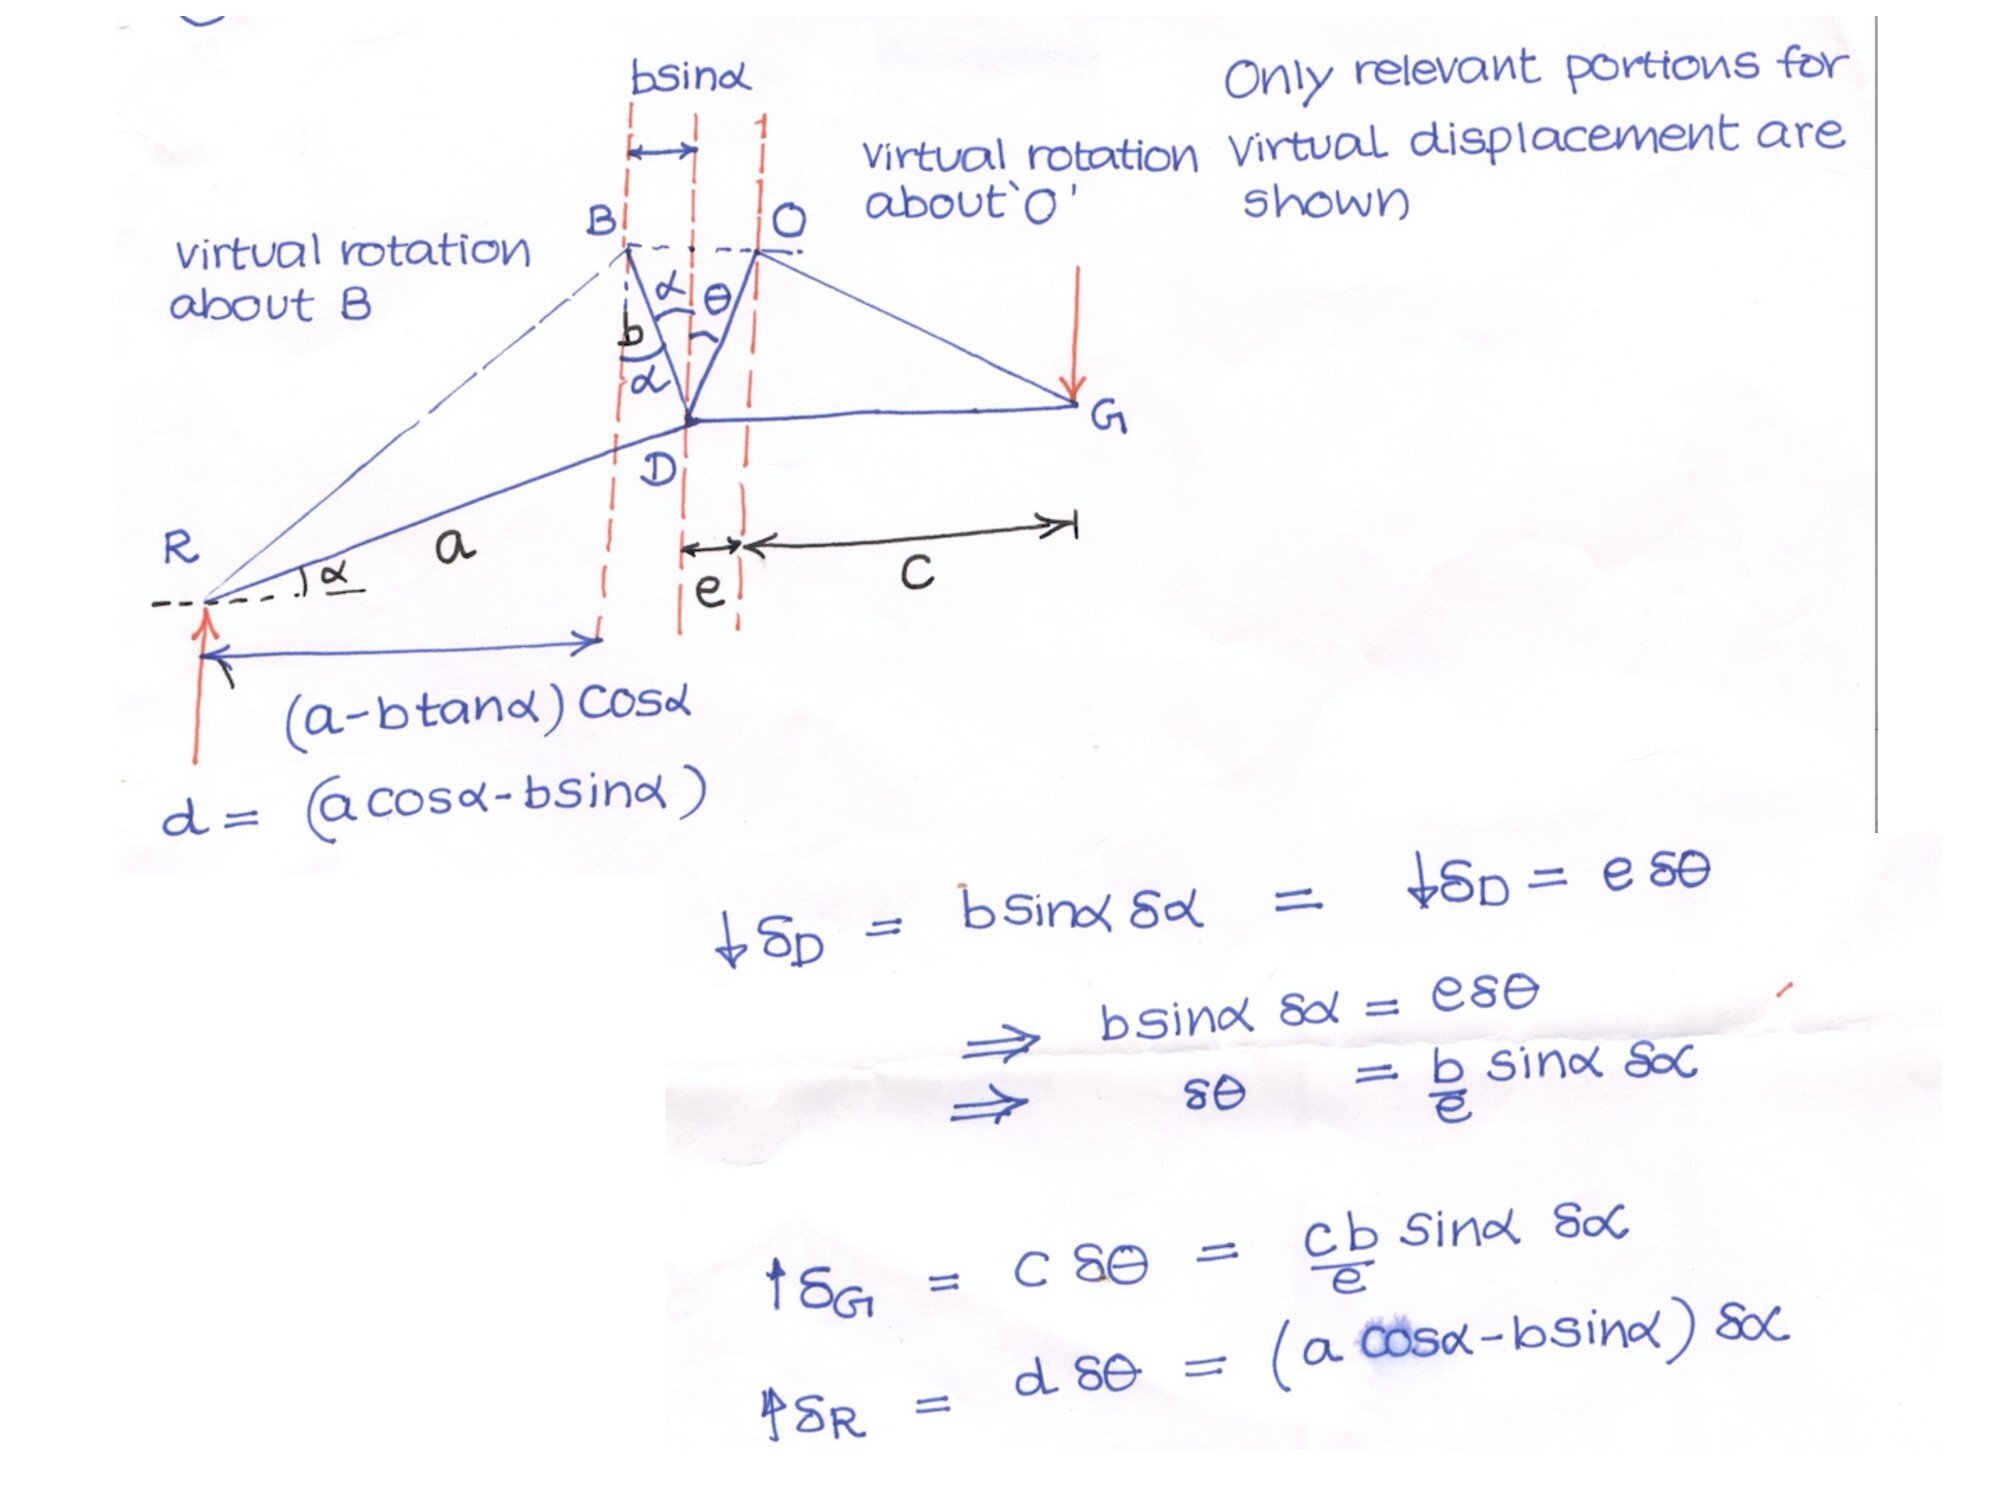 bsinα
Only relevant portions for
virtual displacement are
shown
virtual rotation
about 'O'
B
O
virtual rotation
about B
α
θ
b
α
G
D
R
a
α
e
c
(a-btanα) cosα
d = (a cosα-bsinα)
↓δD = bsinα δα = ↓δD = e δθ
⇒ bsinα δα = eδθ
⇒ δθ = b/e sinα δα
↑δG = c δθ = cb/e sinα δα
↑δR = d δθ = (a cosα-bsinα) δα